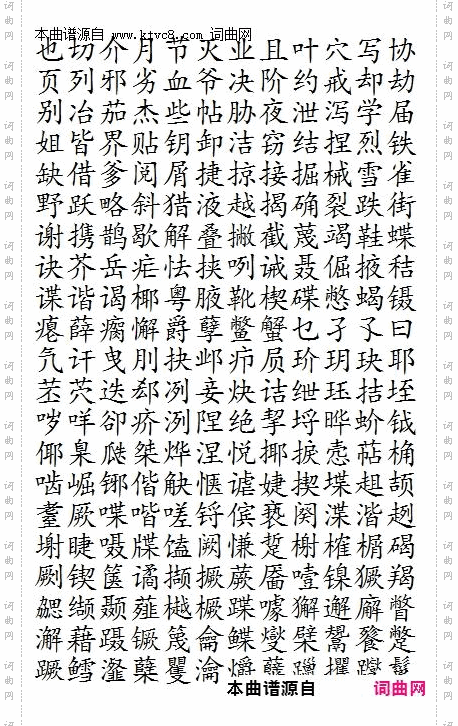 本曲谱源自 www.ktvc8.com 词曲网
也切介月节灭业且叶穴写协
页列邪劣血爷决阶约戒却劫
别冶茄杰些帖胁夜泄泻学届
姐皆界贴钥卸洁窃结捏烈铁
缺借爹阅屑捷掠接掘械雪雀
野跃略斜猎液越揭确裂跌街
谢携鹊歇解叠撇截蔑竭鞋蝶
诀芥岳疟怯挟咧诫聂倔掖秸
谍谐谒椰粤腋靴楔碟憋蝎镊
瘪薛瘸懈爵孽鳖蟹乜孑孓曰
气讦曳刖抉邺疖质玠玥玦耶
苤茓迭郄冽妾炔诘绁珏拮垤
哕咩卻疥洌陧绝挈埒晔蚧钺
倻臬瓞桀烨涅悦揶捩悫萜桷
啮崛铘偕觖惬谑婕揳堞趄颉
耋厥喋喈嗟锊傧亵阕渫湝趔
榭睫嗫牒馌阙慊踅榍榷楣碣
劂锲箧谲撷撅蕨靥噎镍獗羯
勰缬颞薤樾橛蹀噱獬邂廨瞥
澥藉蹑镢篾龠鲽燮檗鷽餮蹩
蹶鳕瀣蘖矍瀹爝躞
本曲谱源自 词曲网
词曲网